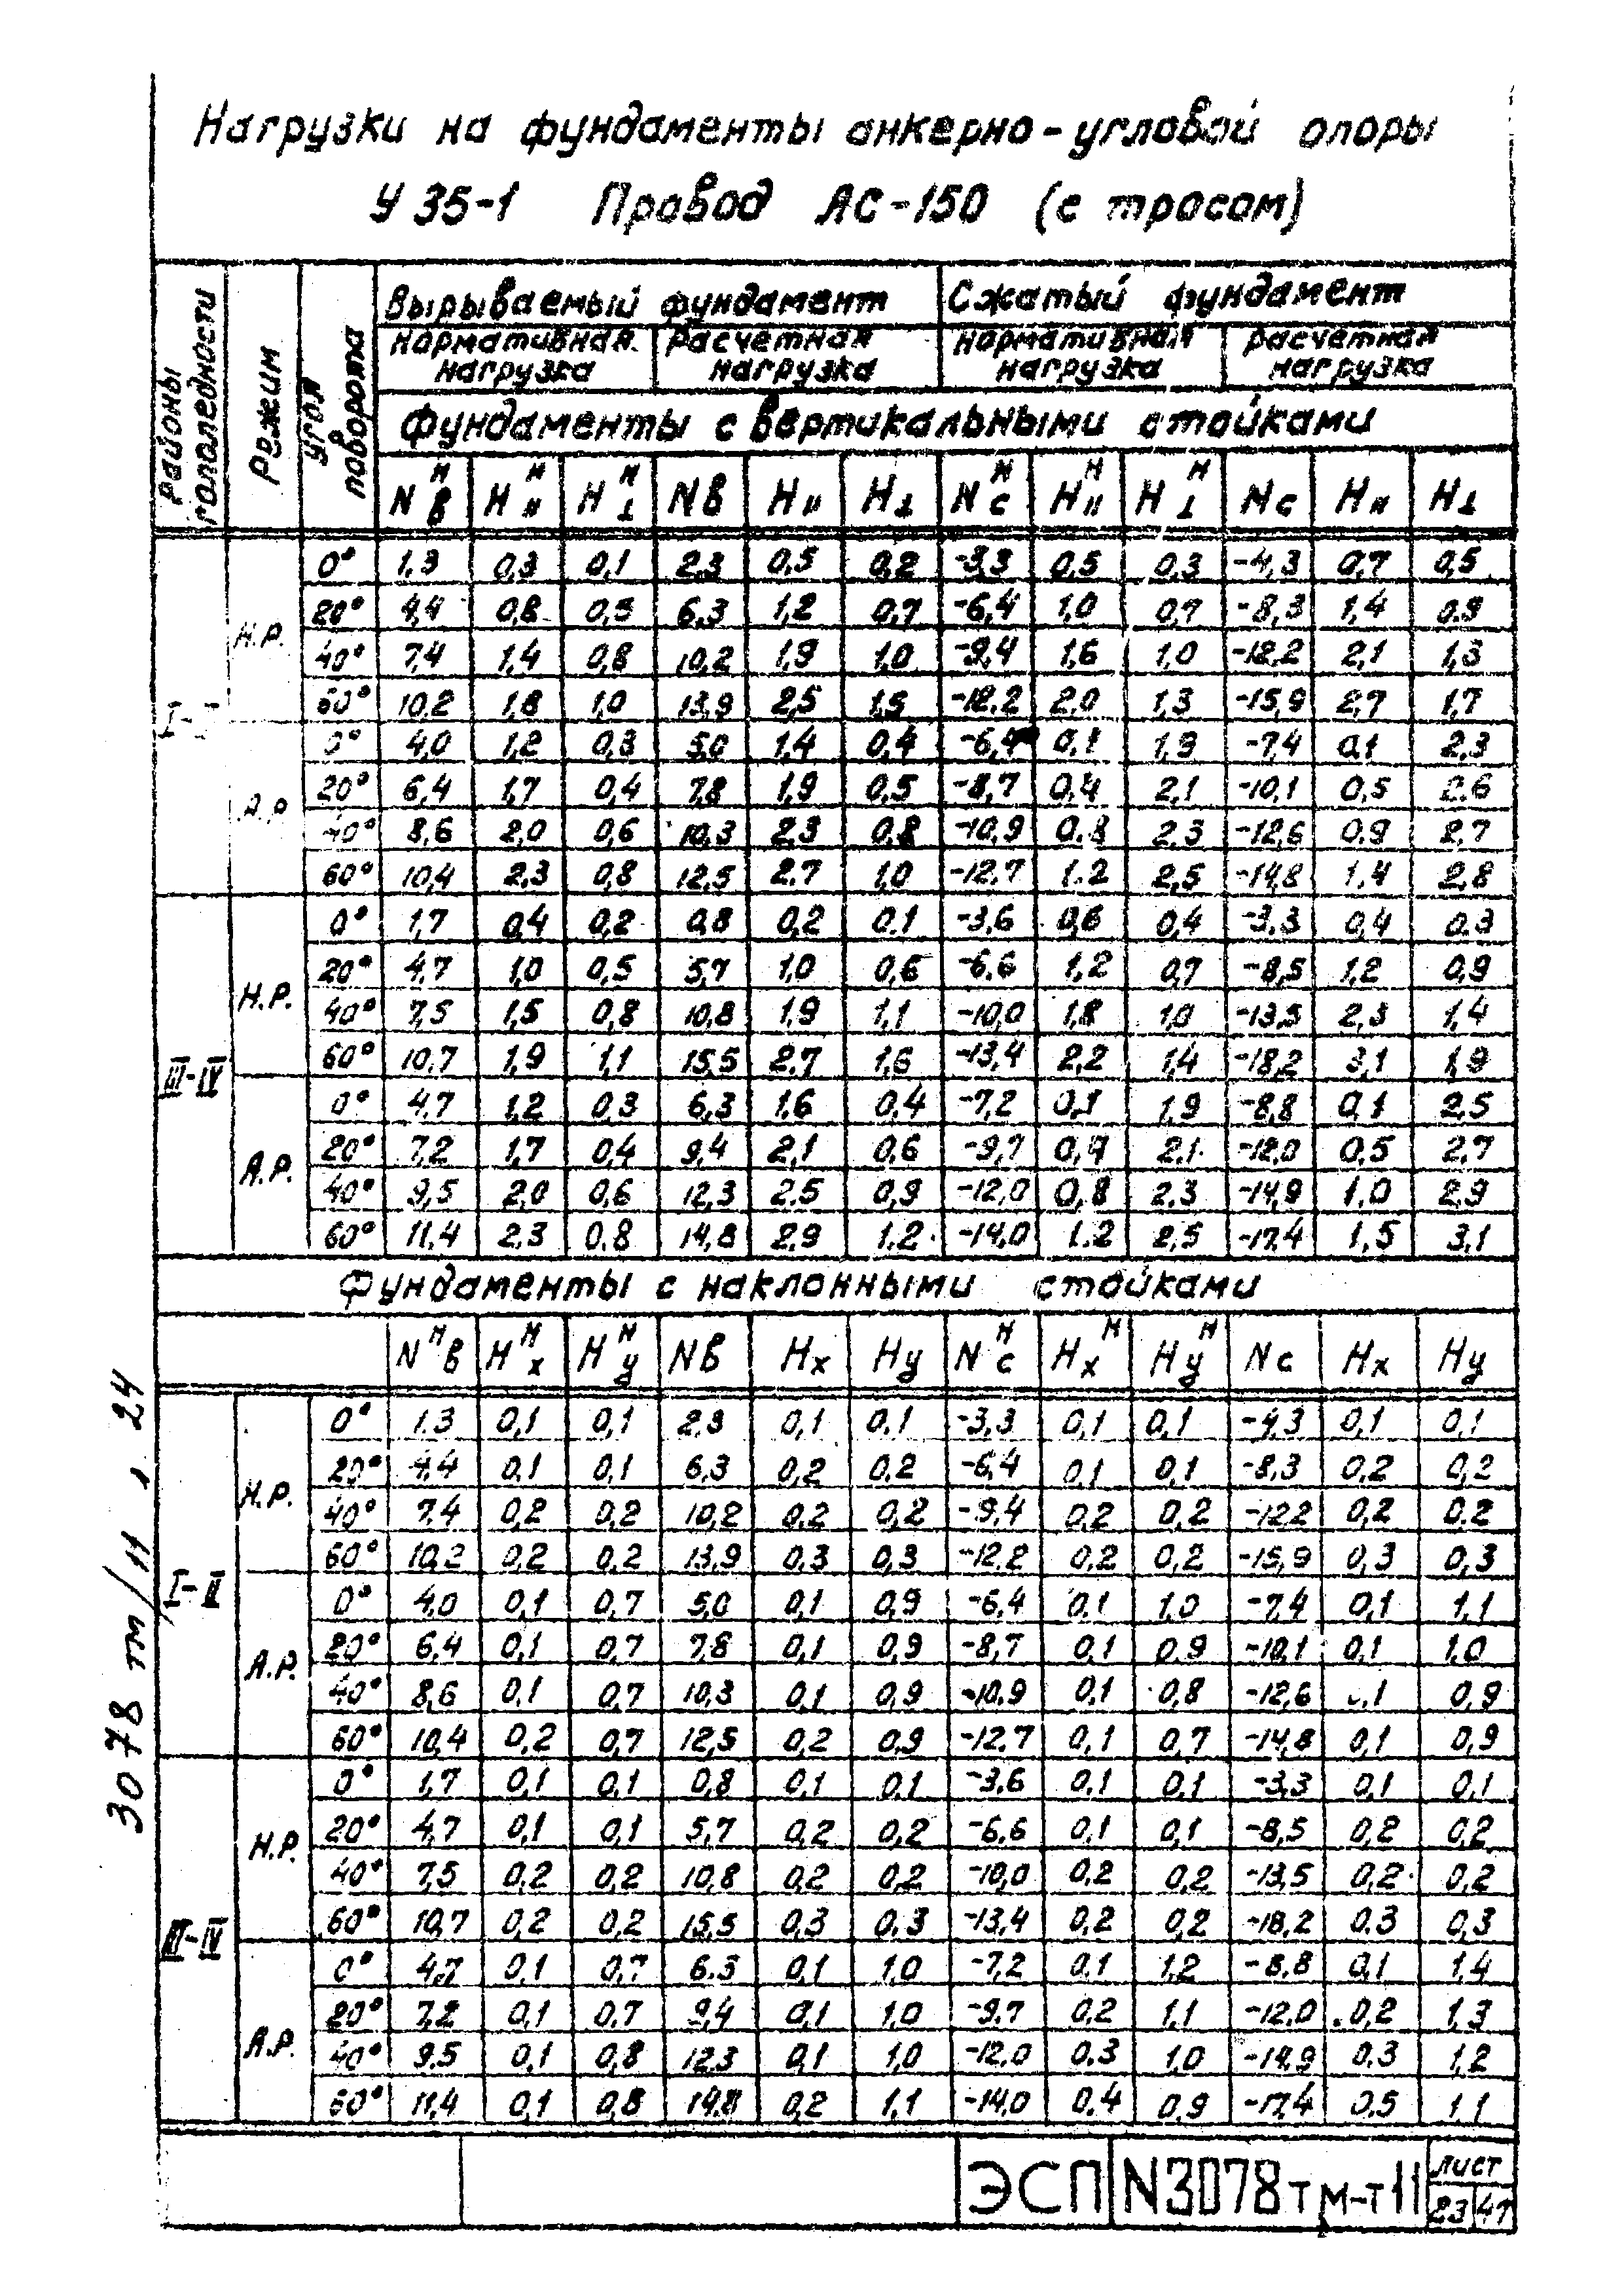 Нагрузки на фундаменты анкерно-угловой опоры
У 35-1 Провод АС-150 (с тросом)
Районы гололедности
Режим
Угол поворота
Вырываемый фундамент Сжатый фундамент
нормативная нагрузка расчетная нагрузка нормативная нагрузка расчетная нагрузка
Фундаменты с вертикальными стойками
Nᴴв Hᴴ॥ Hᴴ⊥ Nв H॥ H⊥ Nᴴс Hᴴ॥ Hᴴ⊥ Nс H॥ H⊥
Н.Р.
0° 1,3 0,3 0,1 2,3 0,5 0,2 -3,3 0,5 0,3 -4,3 0,7 0,5
20° 4,4 0,8 0,5 6,3 1,2 0,7 -6,4 1,0 0,7 -8,3 1,4 0,9
40° 7,4 1,4 0,8 10,2 1,9 1,0 -9,4 1,6 1,0 -12,2 2,1 1,3
60° 10,2 1,8 1,0 13,9 2,5 1,5 -12,2 2,0 1,3 -15,9 2,7 1,7
А.Р
0° 4,0 1,2 0,3 5,0 1,4 0,4 -6,4 0,1 1,9 -7,4 0,1 2,3
20° 6,4 1,7 0,4 7,8 1,9 0,5 -8,7 0,4 2,1 -10,1 0,5 2,6
40° 8,6 2,0 0,6 10,3 2,3 0,8 -10,9 0,8 2,3 -12,6 0,9 2,7
60° 10,4 2,3 0,8 12,5 2,7 1,0 -12,7 1,2 2,5 -14,8 1,4 2,8
III-IV
Н.Р.
0° 1,7 0,4 0,2 0,8 0,2 0,1 -3,6 0,6 0,4 -3,3 0,4 0,3
20° 4,7 1,0 0,5 5,7 1,0 0,6 -6,6 1,2 0,7 -8,5 1,2 0,9
40° 7,5 1,5 0,8 10,8 1,9 1,1 -10,0 1,8 1,0 -13,5 2,3 1,4
60° 10,7 1,9 1,1 15,5 2,7 1,6 -13,4 2,2 1,4 -18,2 3,1 1,9
А.Р.
0° 4,7 1,2 0,3 6,3 1,6 0,4 -7,2 0,1 1,9 -8,8 0,1 2,5
20° 7,2 1,7 0,4 9,4 2,1 0,6 -9,7 0,4 2,1 -12,0 0,5 2,7
40° 9,5 2,0 0,6 12,3 2,5 0,9 -12,0 0,8 2,3 -14,9 1,0 2,9
60° 11,4 2,3 0,8 14,8 2,9 1,2 -14,0 1,2 2,5 -17,4 1,5 3,1
Фундаменты с наклонными стойками
Nᴴв Hᴴх Hᴴу Nв Hх Hу Nᴴс Hхᴴ Hуᴴ Nс Hх Hу
I-II
Н.Р.
0° 1,3 0,1 0,1 2,3 0,1 0,1 -3,3 0,1 0,1 -4,3 0,1 0,1
20° 4,4 0,1 0,1 6,3 0,2 0,2 -6,4 0,1 0,1 -8,3 0,2 0,2
40° 7,4 0,2 0,2 10,2 0,2 0,2 -9,4 0,2 0,2 -12,2 0,2 0,2
60° 10,2 0,2 0,2 13,9 0,3 0,3 -12,2 0,2 0,2 -15,9 0,3 0,3
А.Р.
0° 4,0 0,1 0,7 5,0 0,1 0,9 -6,4 0,1 1,0 -7,4 0,1 1,1
20° 6,4 0,1 0,7 7,8 0,1 0,9 -8,7 0,1 0,9 -10,1 0,1 1,0
40° 8,6 0,1 0,7 10,3 0,1 0,9 -10,9 0,1 0,8 -12,6 0,1 0,9
60° 10,4 0,2 0,7 12,5 0,2 0,9 -12,7 0,1 0,7 -14,8 0,1 0,9
III-IV
Н.Р.
0° 1,7 0,1 0,1 0,8 0,1 0,1 -3,6 0,1 0,1 -3,3 0,1 0,1
20° 4,7 0,1 0,1 5,7 0,2 0,2 -6,6 0,1 0,1 -8,5 0,2 0,2
40° 7,5 0,2 0,2 10,8 0,2 0,2 -10,0 0,2 0,2 -13,5 0,2 0,2
60° 10,7 0,2 0,2 15,5 0,3 0,3 -13,4 0,2 0,2 -18,2 0,3 0,3
А.Р.
0° 4,7 0,1 0,7 6,3 0,1 1,0 -7,2 0,1 1,2 -8,8 0,1 1,4
20° 7,2 0,1 0,7 9,4 0,1 1,0 -9,7 0,2 1,1 -12,0 0,2 1,3
40° 9,5 0,1 0,8 12,3 0,1 1,0 -12,0 0,3 1,0 -14,9 0,3 1,2
60° 11,4 0,1 0,8 14,8 0,2 1,1 -14,0 0,4 0,9 -17,4 0,5 1,1
3078 тм/11 л 24
ЭСП N3078тм-т11
лист
23 47